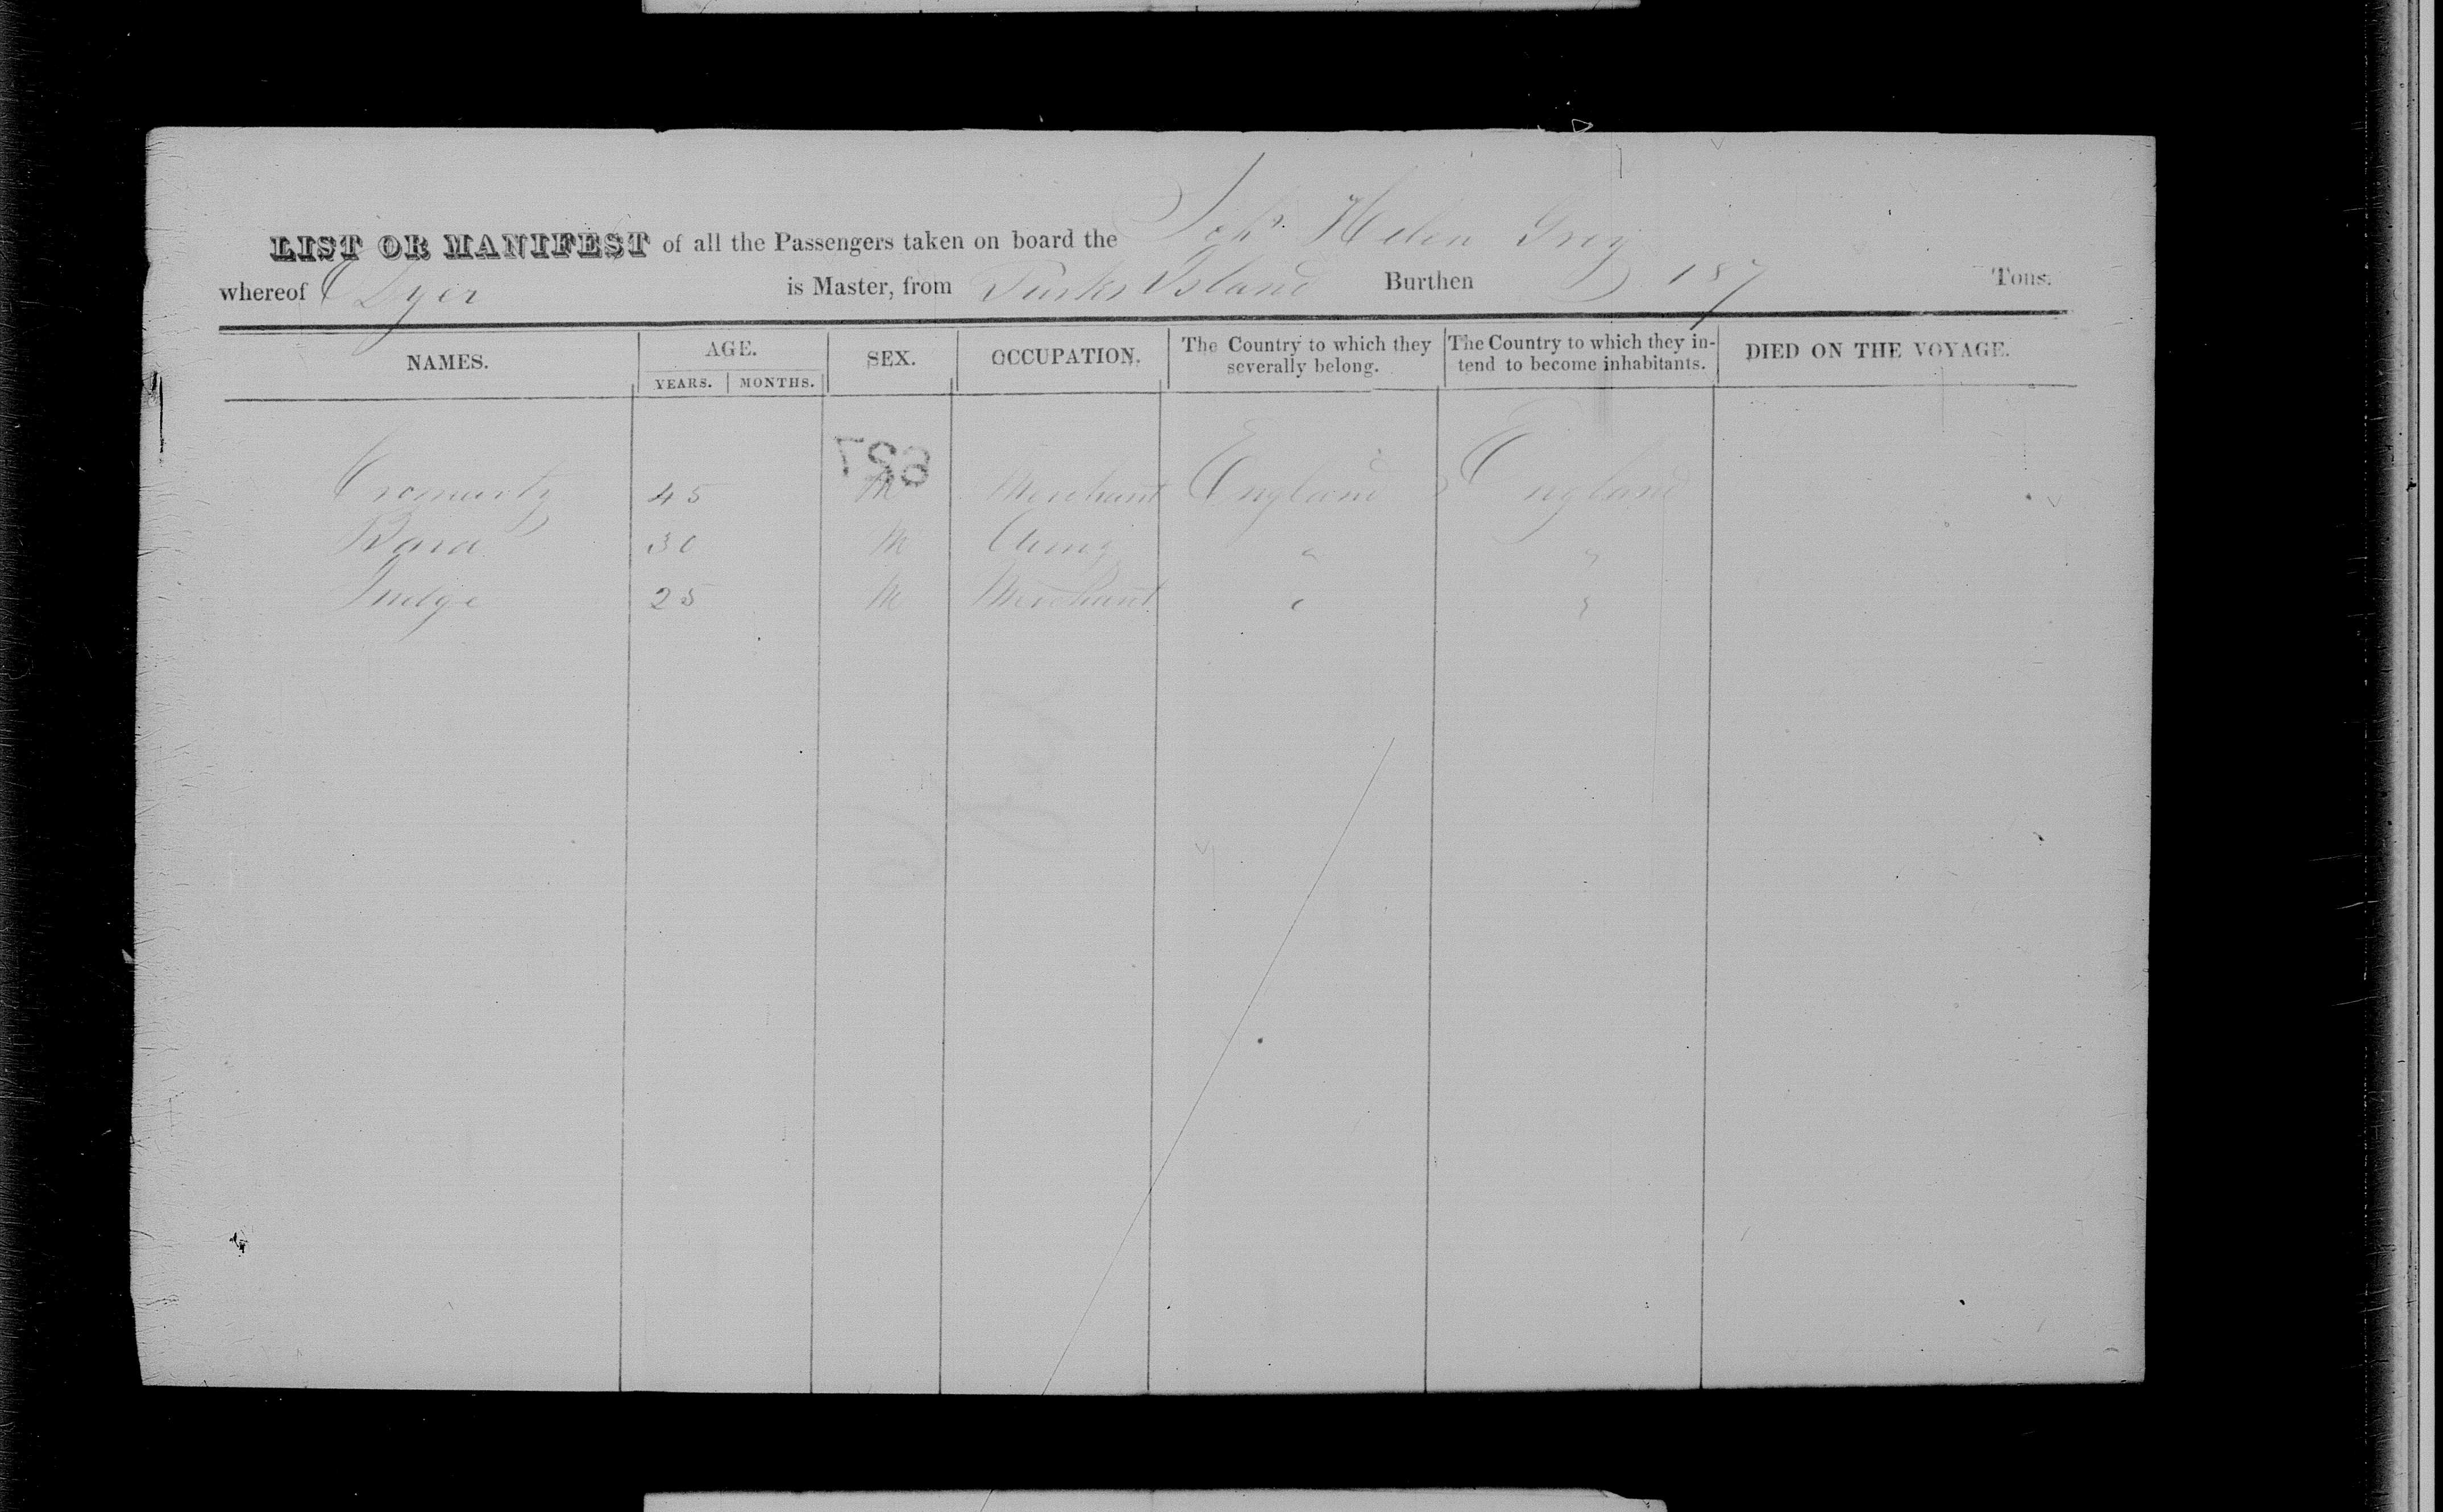 LIST OR MANIFEST of all the Passengers taken on board the Schr. Helen Grey
whereof Dyer is Master, from Turks Island Burthen 187 Tons.
NAMES. AGE. SEX. OCCUPATION. The Country to which they severally belong. The Country to which they intend to become inhabitants. DIED ON THE VOYAGE.
YEARS. MONTHS.
627
Cromarty 45 M Merchant England England
30 M Army " "
Judge 25 M Merchant " "